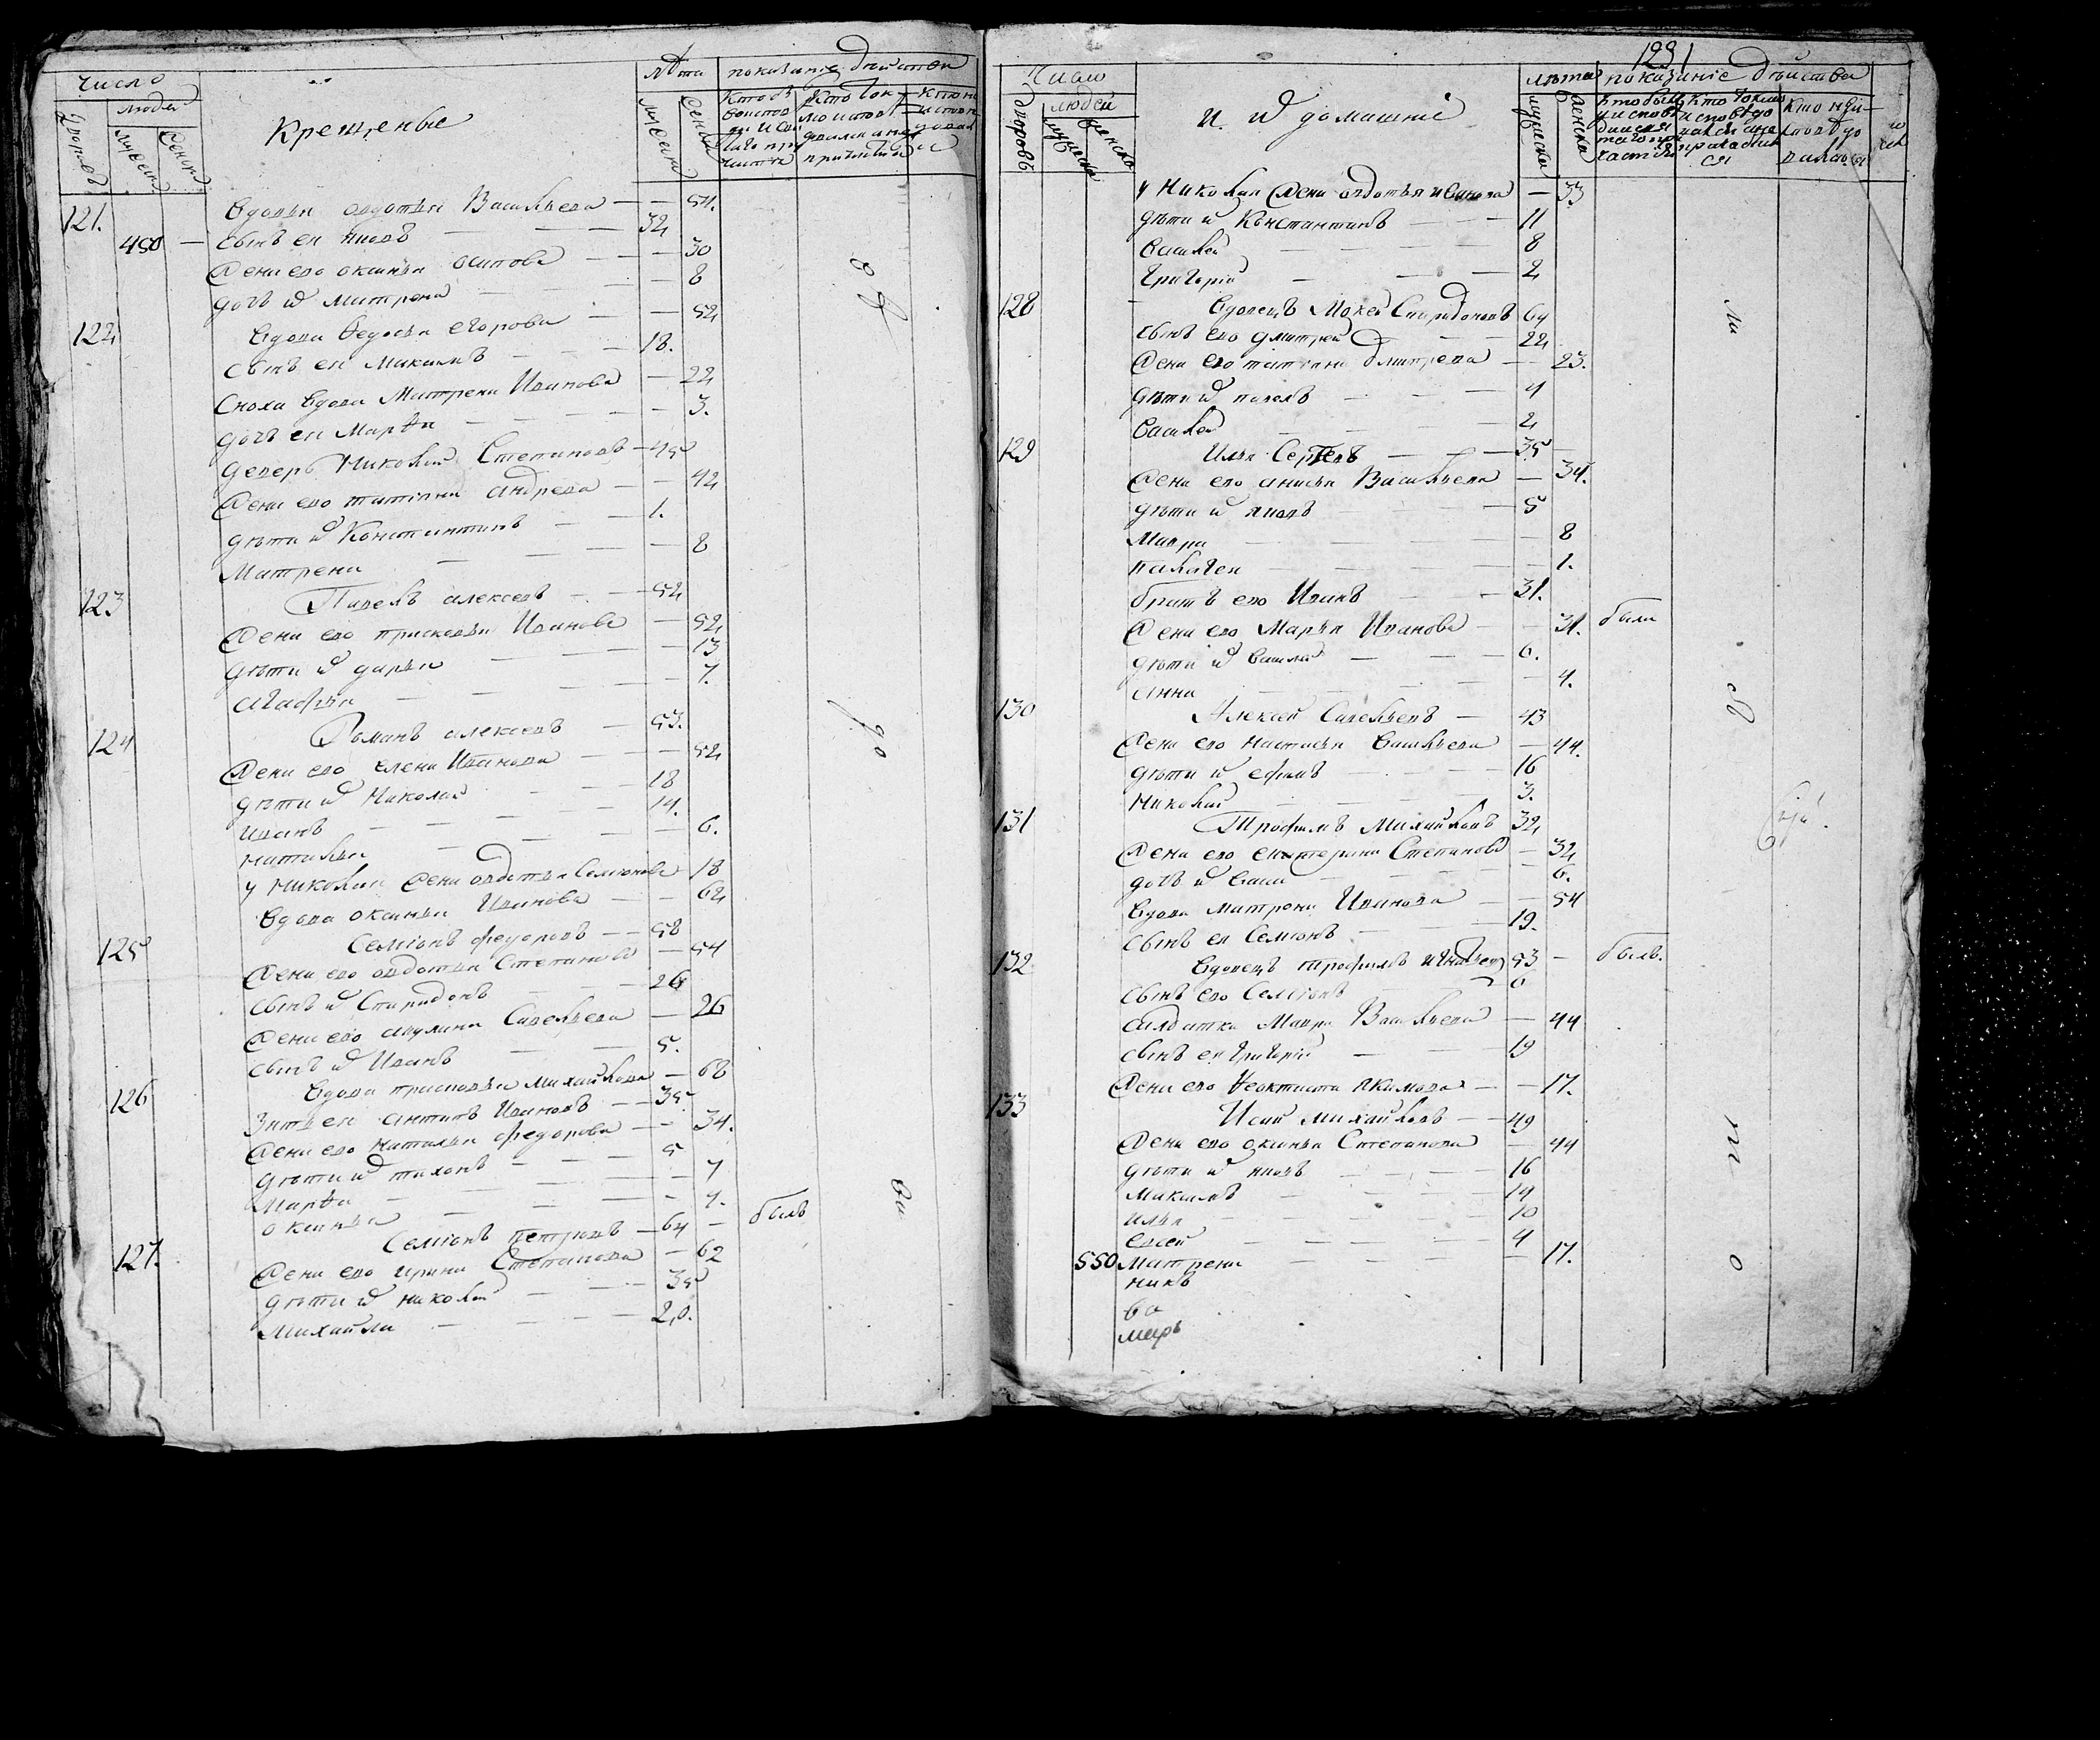 число
людей
дворовъ
мужеска
женска
Крещеные
лѣта
мужеска
женска
показание действа
121. Вдова авдотья Васильева — — 54.
450 — сынъ ея яковъ — — 32
жена его оксинья осипова — — 30
дочь их матрена — — 8
122 Вдова Ѳедосья егорова — — 52
сынъ ея Максимъ — — 18.
Сноха вдова Матрена Иванова — 22
дочь ея Марѳа — — 3.
деверь Николай Степановъ — 45
жена его татиана андреева — — 42
дѣти их Константинъ — — 1.
Матрена — — 8
123 Павелъ алексеевъ — — 52
жена его прасковья Иванова — 52
дѣти их дарья — — 13
агафья — — 7.
124 Романъ алексеевъ — 53.
жена его елена Иванова — — 52
дѣти их Николай — — 18
иванъ — — 14.
наталья — — 6.
у Николая жена авдотья Семионова 18
Вдова оксинья Иванова — — 62
125 Семионъ федоровъ — — 58
жена его авдотья Степанова — 54
сынъ их Спиридонъ — — 26
жена его акулина Савельева — 26
сынъ их Иванъ — — 5.
126 Вдова прасковья михайлова — 68
Зять ея антипъ Ивановъ — — 35
жена его Наталья федорова — — 34.
дѣти их тихонъ — — 5
Марѳа — — 7
оксинья — — 7.
127. Семионъ петровъ — 64 — былъ
жена его ирина Степанова — 62
дѣти их николай — — 35
Михайла — — 20.
1231
Число
людей
дворовъ
мужеска
женска
и их домашние
лѣта
мужеска
женска
показание действа
у Николая жена авдотья иванова — 33
дѣти их Константинъ — — 11
василей — — 8
григорий — — 2
128 Вдовецъ Мокей Спиридоновъ 64
сынъ его дмитрей — — 22
жена его татиана дмитрева — — 23.
дѣти их павелъ — — 4
василей — — 2
129 Илья Сергеевъ — — 35
жена его анисья Васильева — 34.
дѣти их яковъ — — 5
Мавра — — 8
палагея — — 1.
братъ его Иванъ — — 31.
жена его Марья Иванова — — 31. были
дѣти их василей — — 6.
анна — — 4.
130 Алексей Савельевъ — 43
жена его настасья васильева — 44.
дѣти их ефимъ — — 16
николай — — 3.
131 Трофимъ Михайловъ 32
жена его екатерина Степанова — 32
дочь их васса — — 6.
Вдова матрона Иванова — — 54
сынъ ея Семионъ — — 19.
132 Вдовецъ трофимъ игнатьевъ 53 — былъ.
сынъ его Семионъ — 6
салдатка Мавра Васильева — 44
сынъ ея григорий — — 19
жена его Ѳеоктиста якимова — — 17.
133 Исай михайловъ — — 49
жена его оксинья Степанова — 44
дѣти их яковъ — — 16
максимъ — — 14
илья — — 10
евсей — — 4
550 матрена — — 17.